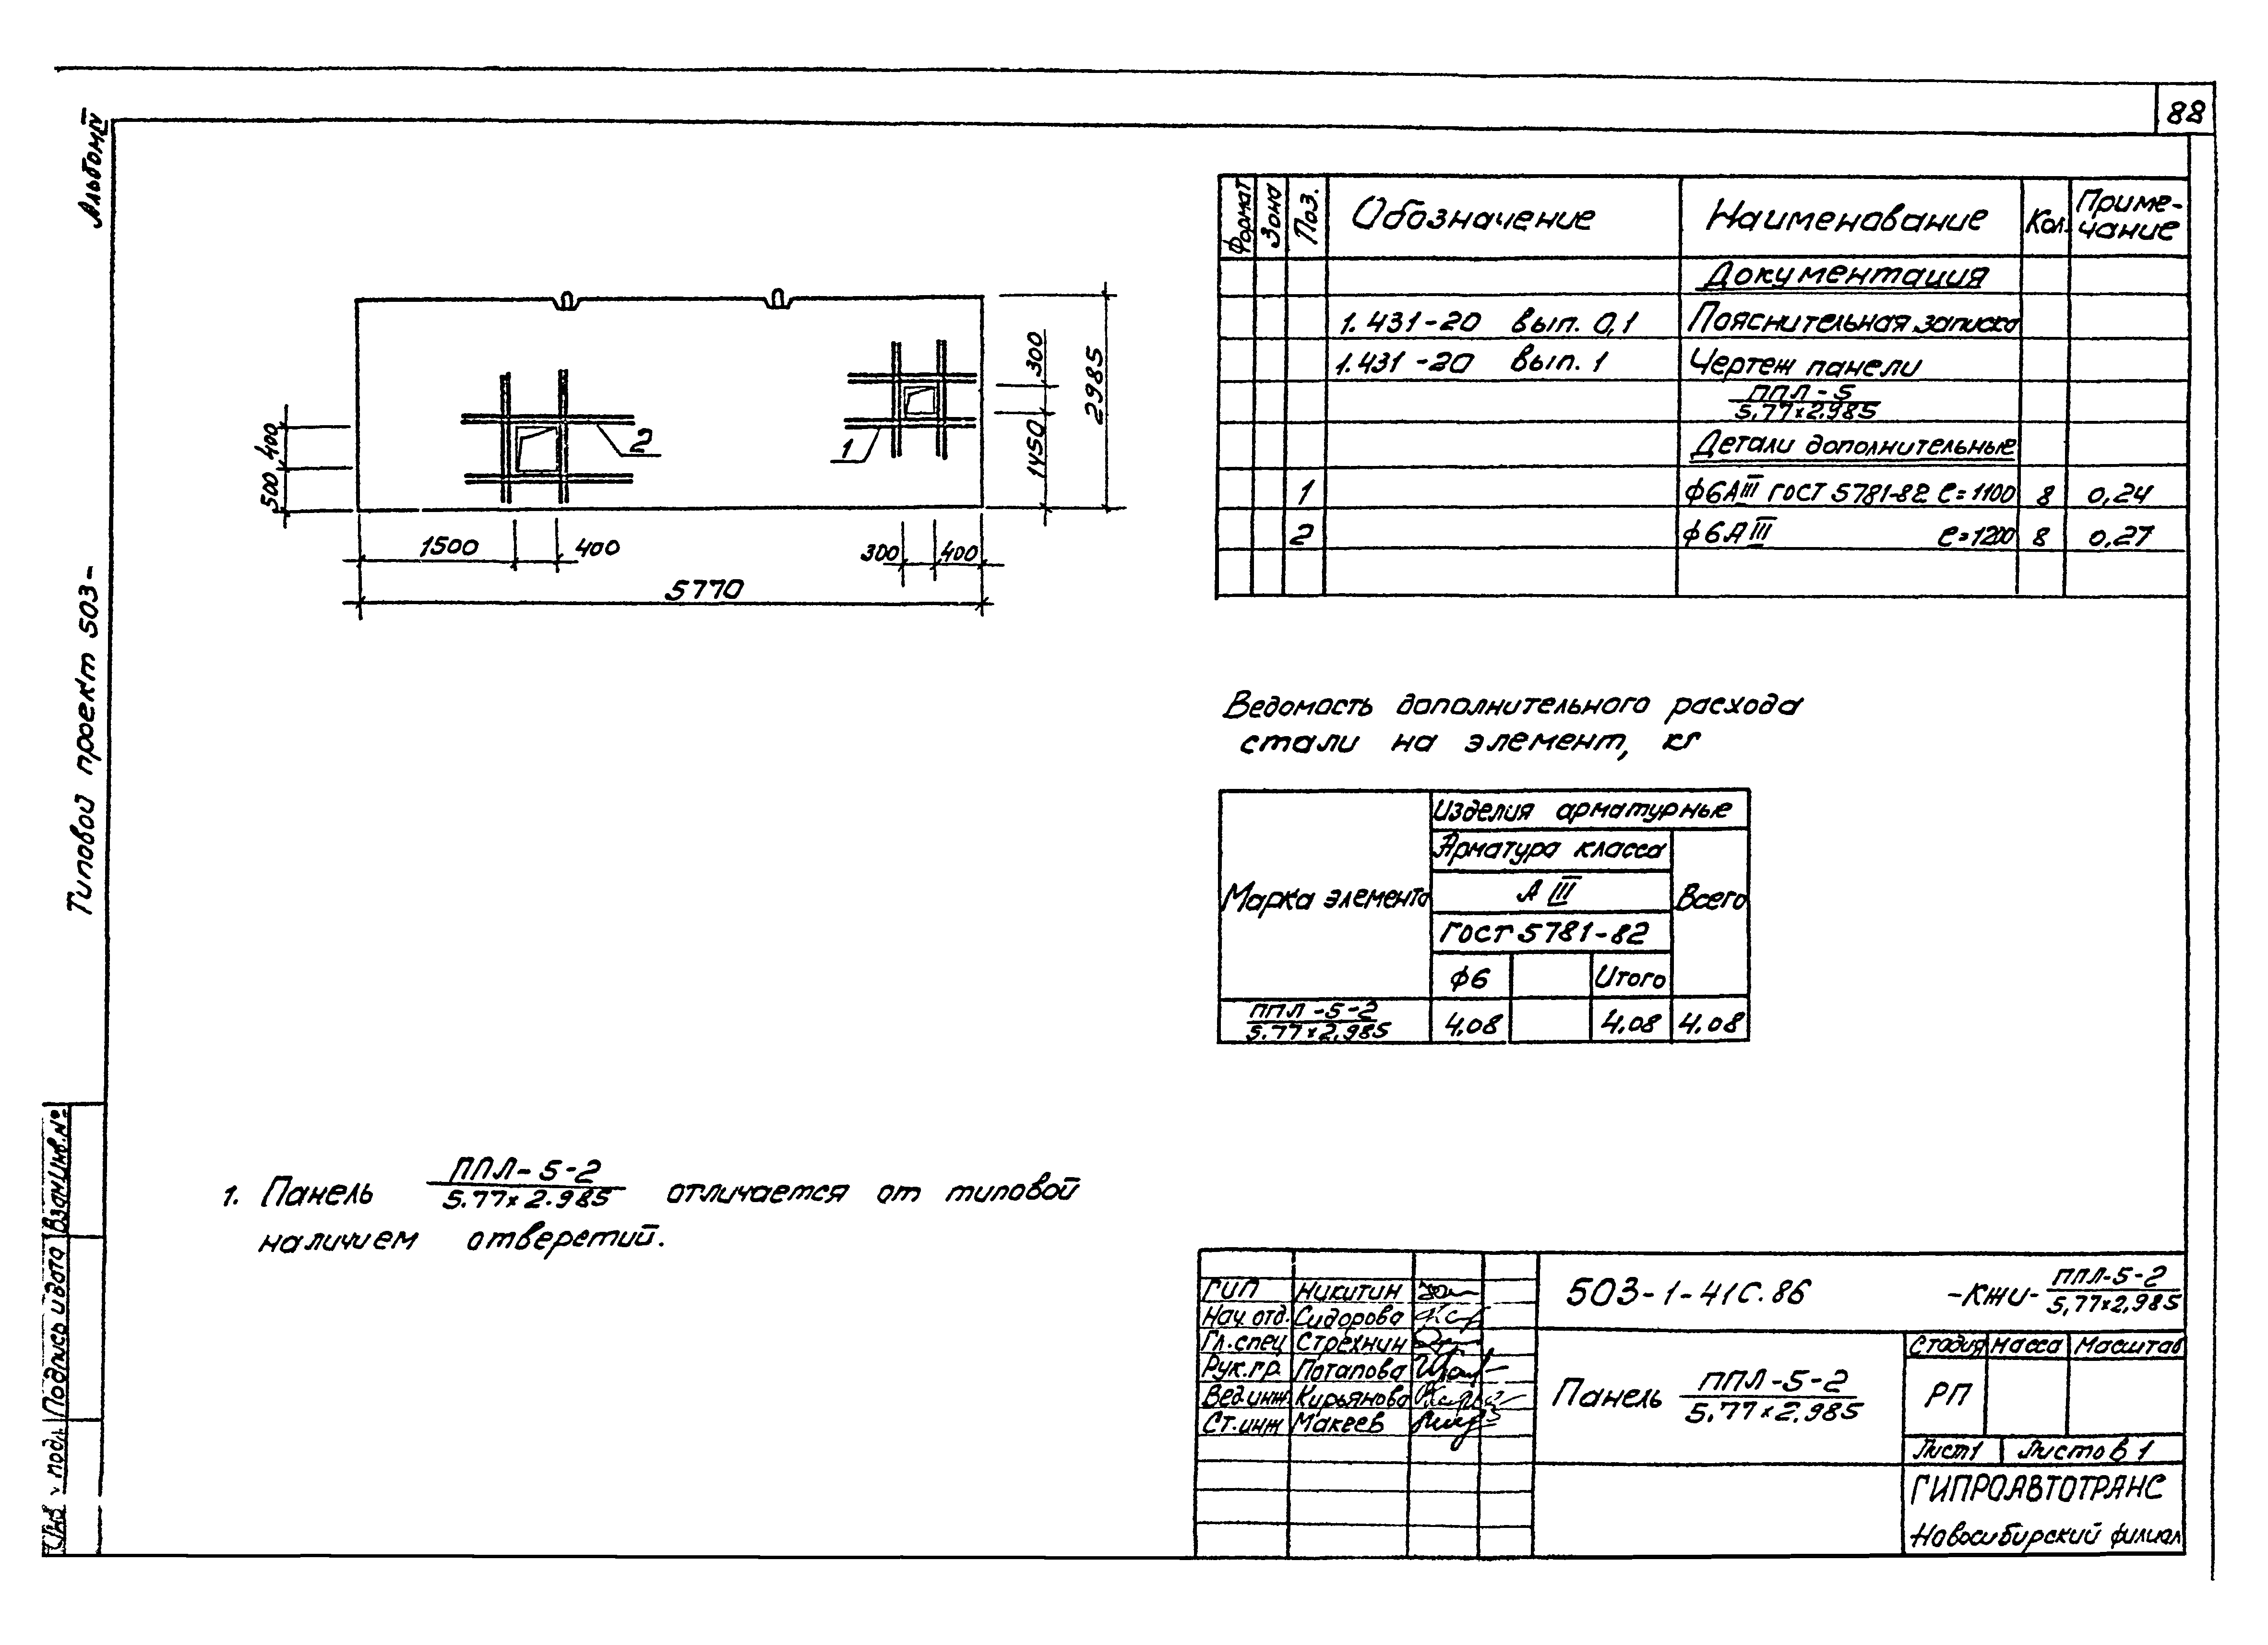 88
Альбом IV
Типовой проект 503-
Взам.инв.№
Подпись и дата
Инв. № подл.
2
1
400
500
300
1450
2985
1500
400
300
400
5770
Формат Зона Поз. Обозначение Наименование Кол. Приме-
чание
Документация
1.431-20 вып. 0,1 Пояснительная записка
1.431-20 вып. 1 Чертеж панели
ППЛ-5
5.77×2.985
Детали дополнительные
1 ф6АIII ГОСТ 5781-82 ℓ=1100 8 0,24
2 ф6АIII ℓ=1200 8 0,27
Ведомость дополнительного расхода
стали на элемент, кг
Марка элемента
Изделия арматурные
Арматура класса
А III
Всего
ГОСТ 5781-82
ф6 Итого
ППЛ-5-2
5.77×2.985
4,08 4,08 4,08
1. Панель ППЛ-5-2 / 5.77×2.985 отличается от типовой
наличием отверстий.
ГИП Никитин
Нач.отд. Сидорова
Гл.спец Стрехнин
Рук.гр. Потапова
Вед.инж. Кирьянова
Ст.инж Макеев
503-1-41с.86 -КЖИ- ППЛ-5-2 / 5,77×2,985
Панель ППЛ-5-2 / 5.77×2.985
Стадия Масса Масштаб
РП
Лист 1 Листов 1
ГИПРОАВТОТРАНС
Новосибирский филиал